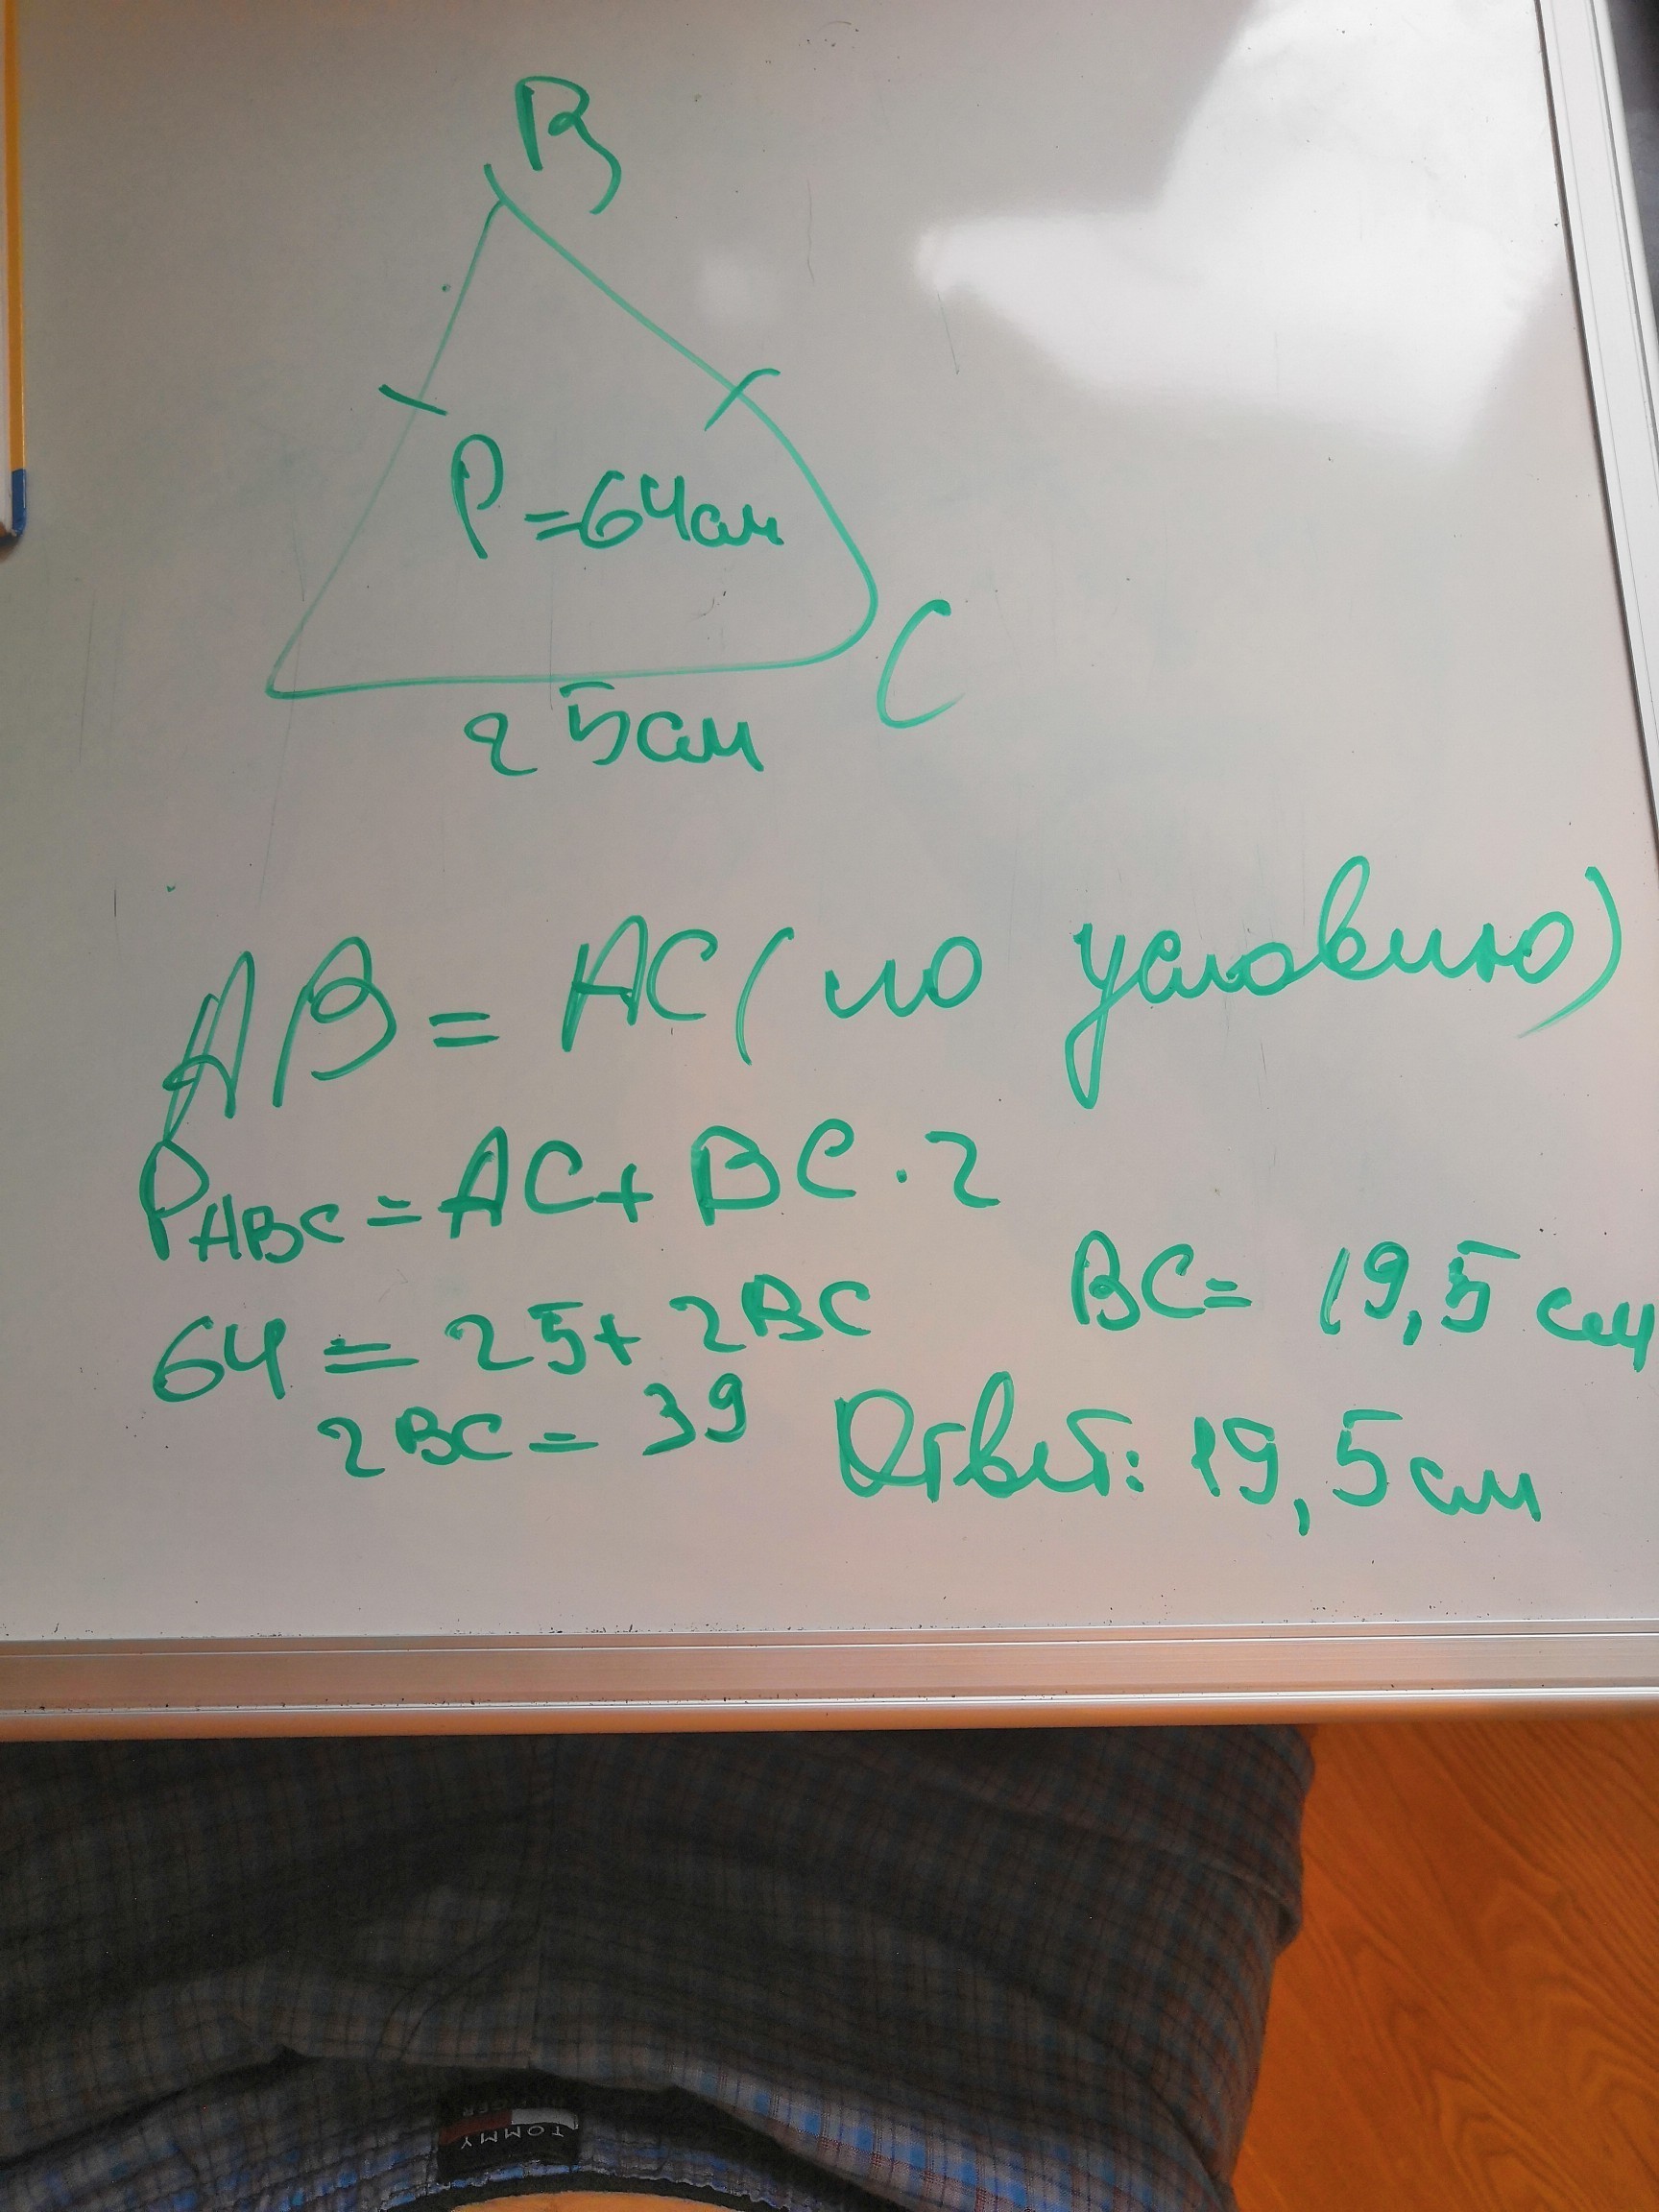 B
P=64см
C
25см
AB = AC (по условию)
PABC = AC + BC · 2
64 = 25 + 2BC
2BC = 39
BC = 19,5 см
Ответ: 19,5 см
TOMMY